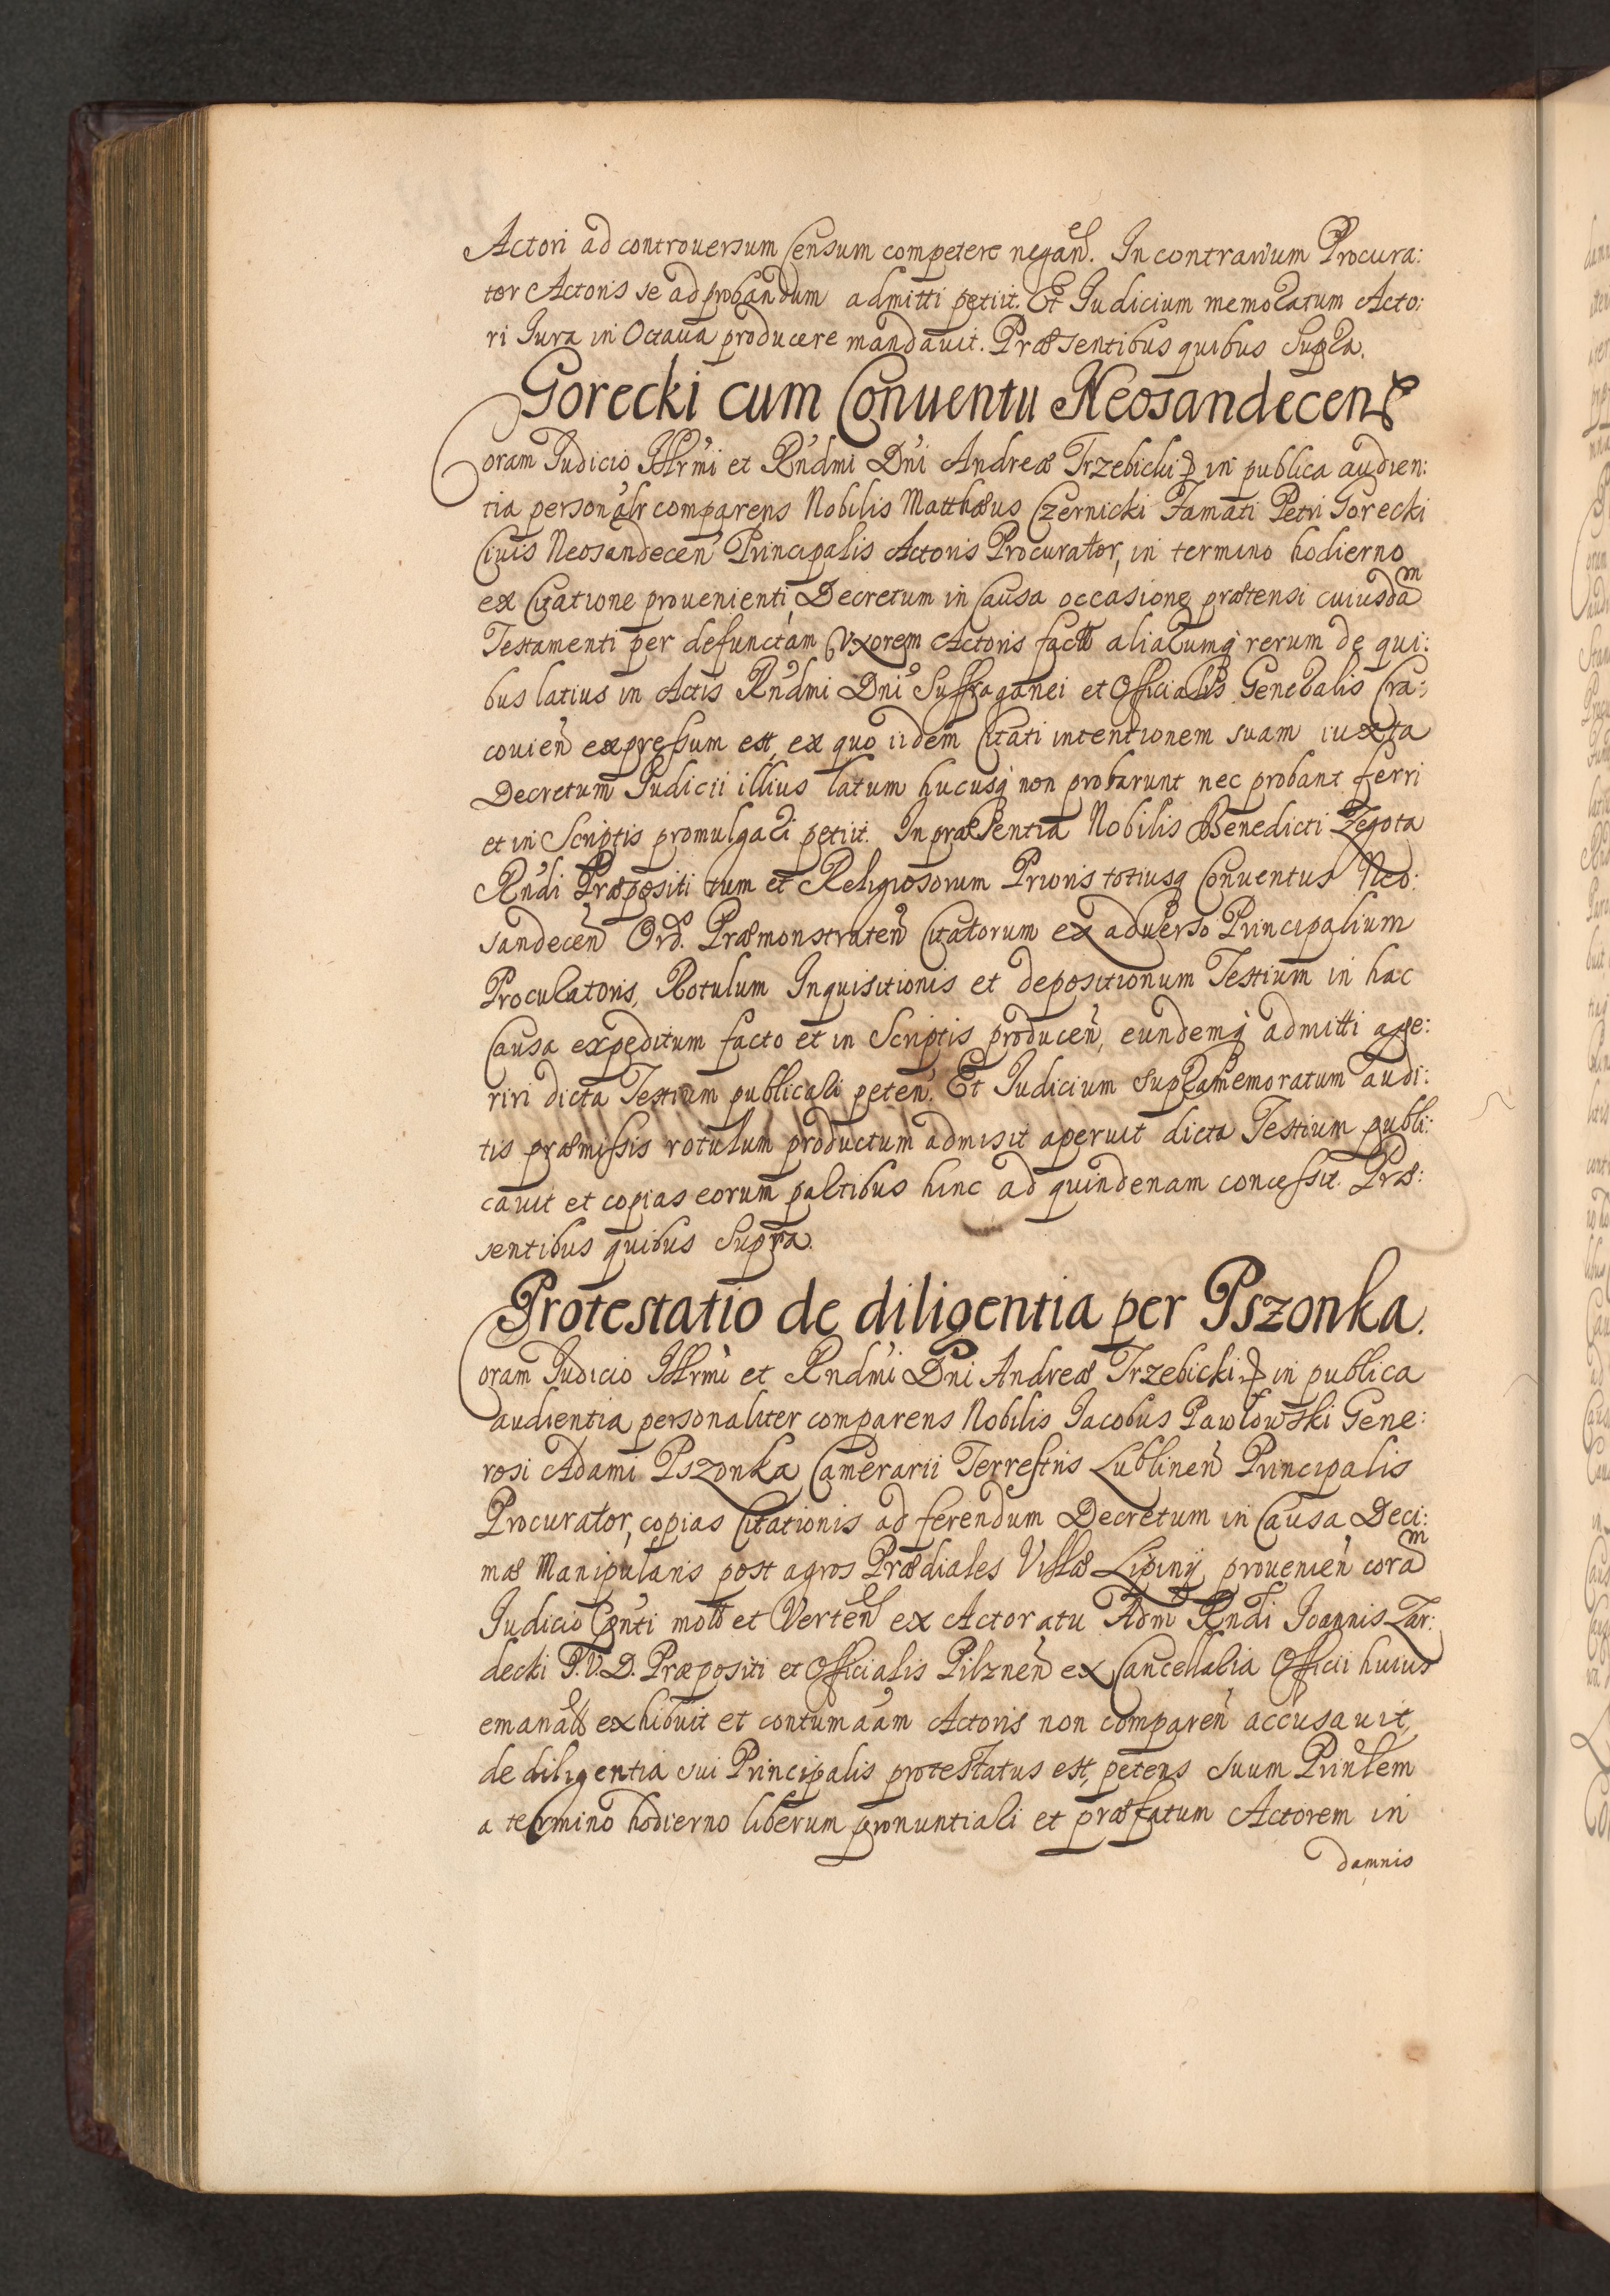 Actori ad controuersum Censum competere negan. In contrarium Procura:
tor Actoris se ad probandum admitti petiit. Et Judicium memoratum Acto:
ri Jura in Octaua producere mandauit. Præsentibus quibus Supra.
Gorecki cum Conuentu Neosandecen
Coram Judicio Illr'mi et Rn'dmi Dn'i Andreæ Trzebicki in publica audien:
tia personalr comparens Nobilis Matthæus Czernicki Famati Petri Gorecki
Ciuis Neosandecen' Principalis Actoris Procurator, in termino hodierno
ex Citatione prouenienti Decretum in Causa occasione prætensi cuiusdam
Testamenti per defunctam Vxorem Actoris facti aliarumq rerum de qui:
bus latius in Actis Rn'dmi Dni' Suffraganei et Officialis Generalis Cra:
couien' expressum est, ex quo iidem Citati intentionem suam iuxta
Decretum Judicii illius latum hucusq non probarunt nec probant ferri
et in Scriptis promulgari petiit. In præsentia Nobilis Benedicti Zegota
Rn'di Præpositi tum et Religiosorum Prioris totiusq Conuentus Neo:
sandecen' Ord. Præmonstraten' Citatorum ex aduerso Principalium
Procuratoris, Rotulum Inquisitionis et depositionum Testium in hac
Causa expeditum facto et in Scriptis producen', eundemq admitti ape:
riri dicta Testium publicari peten'. Et Judicium supramemoratum audi:
tis præmissis rotulum productum admisit aperuit dicta Testium publi:
cauit et copias eorum partibus hinc ad quindenam concessit. Præ:
sentibus quibus Supra.
Protestatio de diligentia per Pszonka.
Coram Judicio Illrmi et Rndm'i Dn'i Andreæ Trzebicki in publica
audientia personaliter comparens Nobilis Jacobus Pawlowski Gene:
rosi Adami Pszonka Camerarii Terrestris Lublinen' Principalis
Procurator, copias Citationis ad ferendum Decretum in Causa Deci:
mæ Manipularis post agros Prædiales Villæ Lipiny prouenien' coram
Judicio Pn'ti mot et Verten ex Actoratu Adm Rndi Joannis Zar:
decki J.V.D. Præpositi et Officialis Pilznen' ex Cancellaria Officii huius
emanat exhibuit et contumaciam Actoris non comparen' accusauit,
de diligentia sui Principalis protestatus est, petens suum Prin'lem
a termino hodierno liberum pronuntiari et præfatum Actorem in
damnis